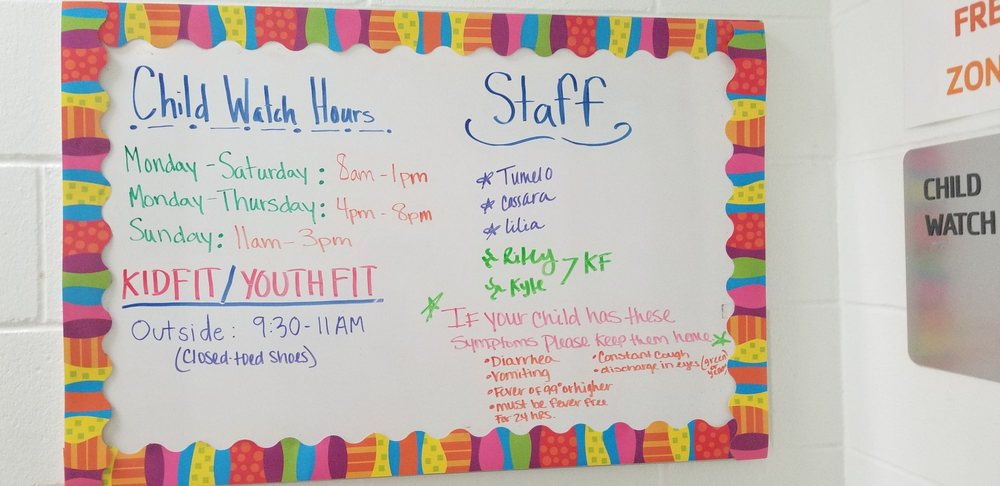 Child Watch Hours
Monday-Saturday: 8am-1pm
Monday-Thursday: 4pm-8pm
Sunday: 11am-3pm
KIDFIT/YOUTH FIT
Outside: 9:30-11AM
(Closed-toed shoes)
Staff
* Tumelo
* Cassara
* Lilia
Riley
Kyle
KF
If your child has these
Symptoms Please Keep them home
• Diarrhea
• Vomiting
• Fever of 99° or higher
• must be fever free
for 24 hrs.
• Constant Cough
• discharge in eyes (green
FRE
ZON
CHILD
WATCH